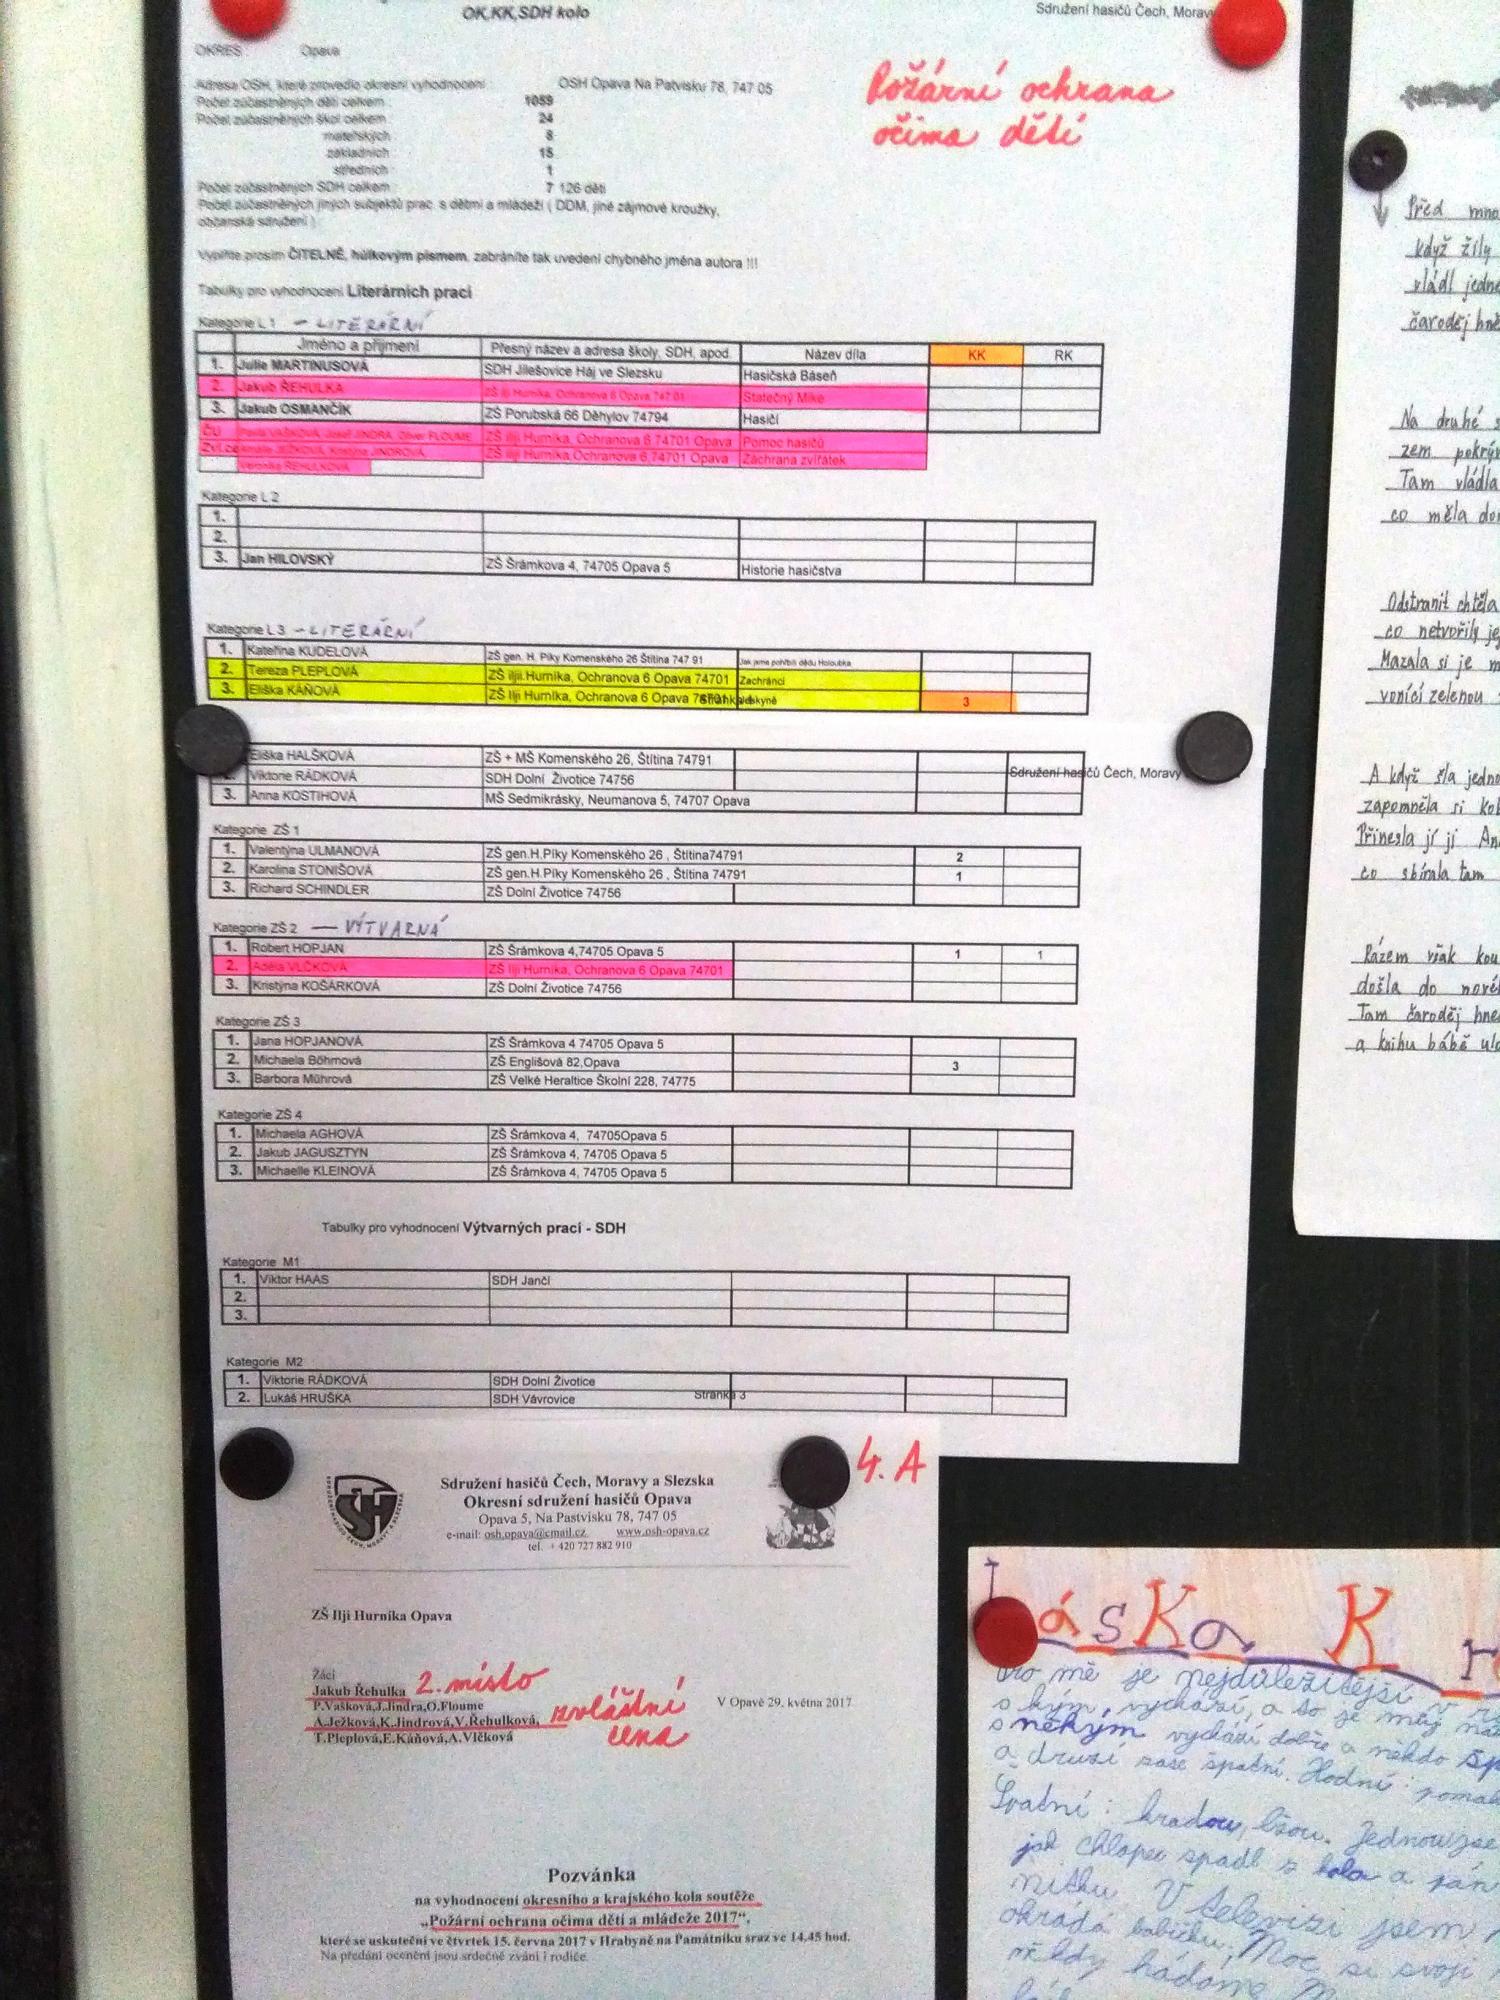 OK,KK,SDH kolo
Sdružení hasičů Čech, Morav
OKRES : Opava
Adresa OSH, které provedlo okresní vyhodnocení : OSH Opava Na Patvisku 78, 747 05
Počet zúčastněných dětí celkem : 1059
Počet zúčastněných škol celkem : 24
mateřských : 8
základních : 15
středních : 1
Počet zúčastněných SDH celkem : 7 126 dětí
Počet zúčastněných jiných subjektů prac. s dětmi a mládeží ( DDM, jiné zájmové kroužky,
občanská sdružení ) :
Požární ochrana
očima dětí
Vyplňte prosím ČITELNĚ, hůlkovým písmem, zabráníte tak uvedení chybného jména autora !!!
Tabulky pro vyhodnocení Literárních prací
Kategorie L 1 – LITERÁRNÍ
Jméno a příjmení Přesný název a adresa školy, SDH, apod. Název díla KK RK
1. Julie MARTINUSOVÁ SDH Jilešovice Háj ve Slezsku Hasičská Báseň
2. Jakub ŘEHULKA ZŠ Ilji Hurníka, Ochranova 6 Opava 747 01 Statečný Mike
3. Jakub OSMANČÍK ZŠ Porubská 66 Děhylov 74794 Hasičí
ČU Pavla VAŠKOVÁ, Josef JINDRA, Oliver FLOUME ZŠ Ilji Hurníka, Ochranova 6,74701 Opava Pomoc hasičů
JEŽKOVÁ, Kristýna JINDROVÁ, ZŠ Ilji Hurníka,Ochranova 6,74701 Opava Záchrana zvířátek
Veronika ŘEHULKOVÁ
Kategorie L 2
1.
2.
3. Jan HILOVSKÝ ZŠ Šrámkova 4, 74705 Opava 5 Historie hasičstva
Kategorie L 3 – LITERÁRNÍ
1. Kateřina KUDELOVÁ ZŠ gen. H. Píky Komenského 26 Štítina 747 91 Jak jsme pohřbili dědu Holoubka
2. Tereza PLEPLOVÁ ZŠ Iljii.Hurníka, Ochranova 6 Opava 74701 Zachránci
3. Eliška KÁŇOVÁ ZŠ Ilji Hurníka, Ochranova 6 Opava 74701 3
Eliška HALŠKOVÁ ZŠ + MŠ Komenského 26, Štítina 74791
2. Viktorie RÁDKOVÁ SDH Dolní Životice 74756 Sdružení hasičů Čech, Moravy
3. Anna KOSTIHOVÁ MŠ Sedmikrásky, Neumanova 5, 74707 Opava
Kategorie ZŠ 1
1. Valentýna ULMANOVÁ ZŠ gen.H.Píky Komenského 26 , Štítina74791 2
2. Karolína STONIŠOVÁ ZŠ gen.H.Píky Komenského 26 , Štítina 74791 1
3. Richard SCHINDLER ZŠ Dolní Životice 74756
Kategorie ZŠ 2 — VÝTVARNÁ
1. Robert HOPJAN ZŠ Šrámkova 4,74705 Opava 5 1 1
2. Adéla VLČKOVÁ ZŠ Ilji Hurníka, Ochranova 6 Opava 74701
3. Kristýna KOŠÁRKOVÁ ZŠ Dolní Životice 74756
Kategorie ZŠ 3
1. Jana HOPJANOVÁ ZŠ Šrámkova 4 74705 Opava 5
2. Michaela Böhmová ZŠ Englišova 82,Opava 3
3. Barbora Mührová ZŠ Velké Heraltice Školní 228, 74775
Kategorie ZŠ 4
1. Michaela AGHOVÁ ZŠ Šrámkova 4, 74705Opava 5
2. Jakub JAGUSZTYN ZŠ Šrámkova 4, 74705 Opava 5
3. Michaelle KLEINOVÁ ZŠ Šrámkova 4, 74705 Opava 5
Tabulky pro vyhodnocení Výtvarných prací - SDH
Kategorie M1
1. Viktor HAAS SDH Jančí
2.
3.
Kategorie M2
1. Viktorie RÁDKOVÁ SDH Dolní Životice
2. Lukáš HRUŠKA SDH Vávrovice Stránka 3
4. A
Sdružení hasičů Čech, Moravy a Slezska
Okresní sdružení hasičů Opava
Opava 5, Na Pastvisku 78, 747 05
e-mail: osh.opava@cmail.cz www.osh-opava.cz
tel. + 420 727 882 910
ZŠ Ilji Hurníka Opava
Žáci
Jakub Řehulka 2. místo
P.Vašková,J.Jindra,O.Floume
A.Ježková,K.Jindrová,V.Řehulková,
T.Pleplová,E.Káňová,A.Vlčková
zvláštní
cena
V Opavě 29. května 2017
Pozvánka
na vyhodnocení okresního a krajského kola soutěže
„Požární ochrana očima dětí a mládeže 2017“,
které se uskuteční ve čtvrtek 15. června 2017 v Hrabyně na Památníku sraz ve 14.45 hod.
Na předání ocenění jsou srdečně zváni i rodiče.
Před mno
když žily
vládl jedn
čaroděj hně
Na druhé s
zem pokrýv
Tam vládla
co měla do
Odstranit chtěla
co netvořily je
Mazala si je m
vonící zelenou
A když šla jedno
zapomněla si ko
Přinesla jí ji An
co sbírala tam
Rázem však kou
došla do nové
Tam čaroděj hne
a knihu bábě ulo
Láska K r
Pro mě je nejdůležitější v r
s kým vychází, a to je můj
s někým vychází dobře a někdo šp
a druzí zase špatní. Hodní : pomah
Špatní : kradou, lžou. Jednou jse
jak chlapec spadl z kola a pán
V televizi jsem
okrádá babičku. Moc si svoji
někdy hádáme.